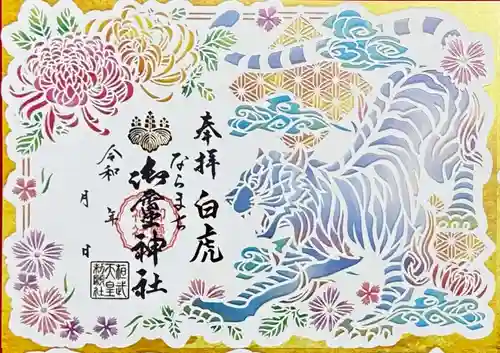 奉拝 白虎
ならまち
御霊神社
令和 年
月 日
桓武
天皇
勅願社